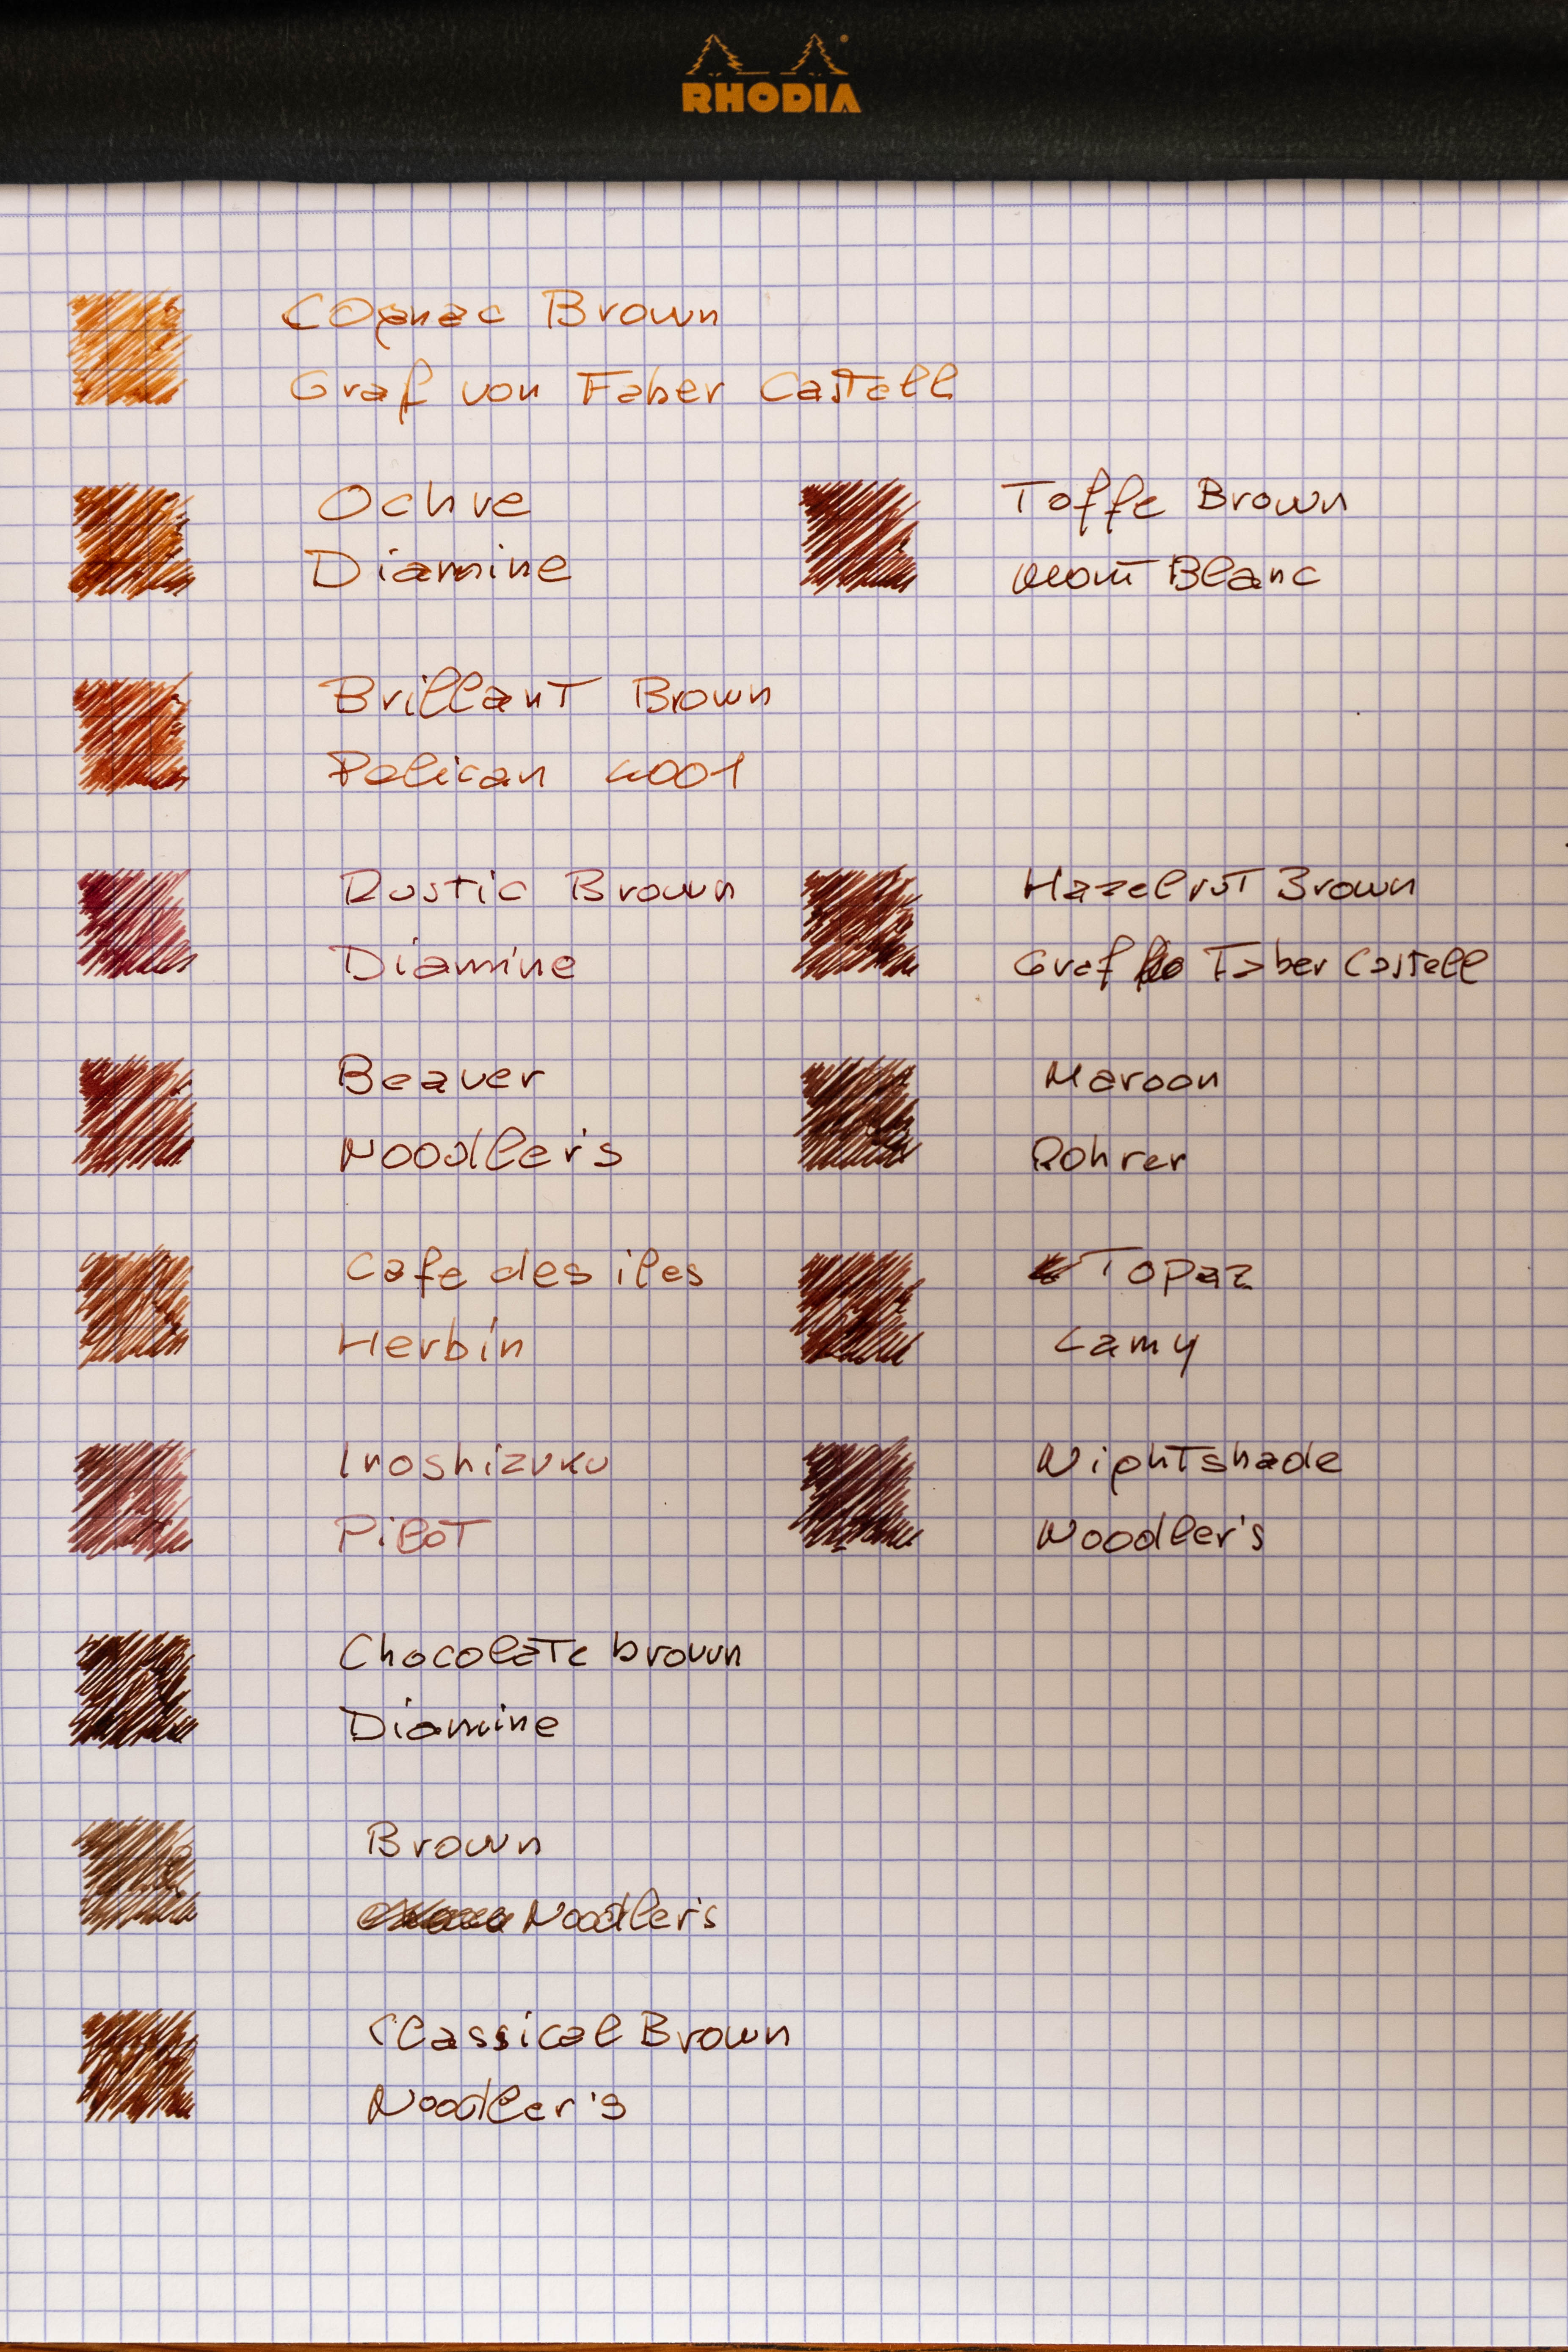 RHODIA
Cognac Brown
Graf von Faber Castell
Ochre
Diamine
Toffe Brown
Mont Blanc
Brillant Brown
Pelican 4001
Rustic Brown
Diamine
Hazelnut Brown
Graf Faber Castell
Beaver
Noodler's
Maroon
Rohrer
Cafe des iles
Herbin
Topaz
Lamy
Iroshizuku
Pilot
Nightshade
Noodler's
Chocolate brown
Diamine
Brown
Noodler's
Classical Brown
Noodler's